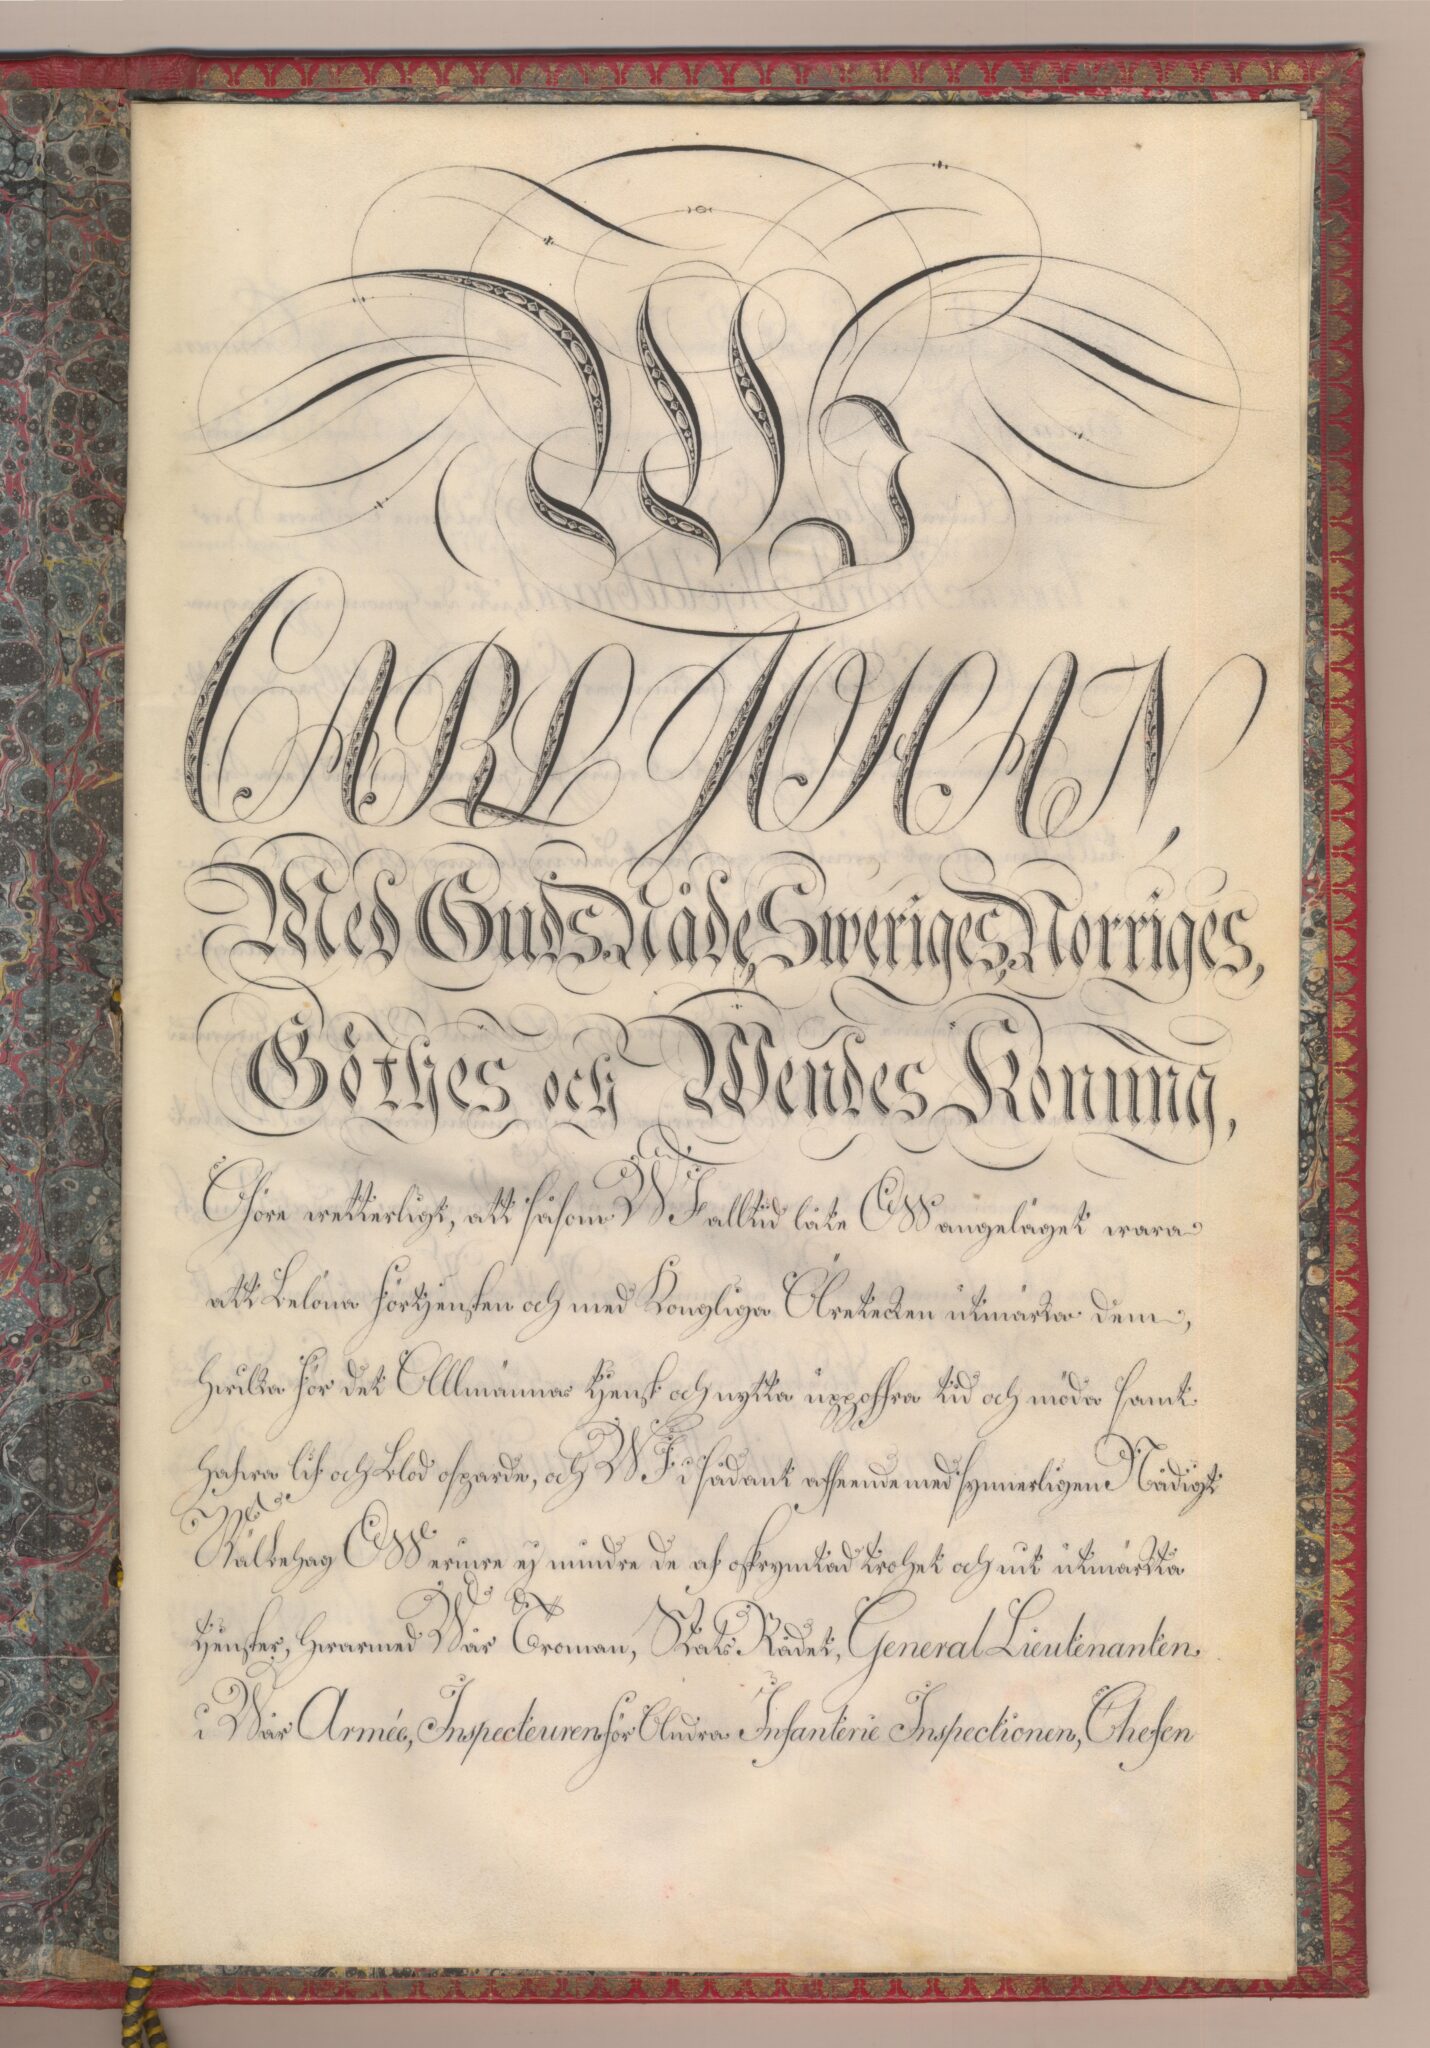 Wi
CARL JOHAN,
Med Guds Nåde, Sweriges, Norriges,
Göthes och Wendes Konung,
Göre wetterligt, att såsom Wi alltid låte Oss angeläget wara
att belöna förtjensten och med Kongliga Äretecken utmärka dem,
hwilka för det Allmännas tjenst och nytta uppoffra tid och möda samt
hafwa lif och blod ospards, och Wi i sådant afseende med synnerligen Nådigt
Wälbehag Oss erinre ej mindre de af oskrymtad trohet och nit utmärkta
tjenster, hwarmed Wår Troman, Stats Rådet, General Lieutenanten
i Wår Armée, Inspecteuren för Andra Infanterie Inspectionen, Chefen